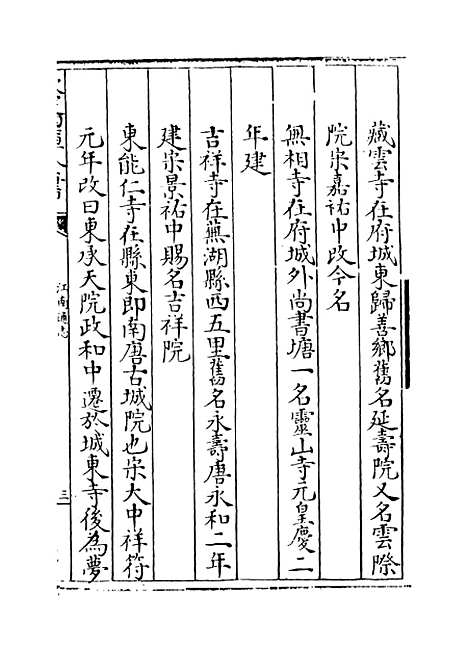 藏雲寺在府城東歸善鄉舊名延壽院又名雲際
院宋嘉祐中改今名
無相寺在府城外尚書塘一名靈山寺元皇慶二
年建
吉祥寺在蕪湖縣西五里舊名永壽唐永和二年
建宋景祐中賜名吉祥院
東能仁寺在縣東即南唐古城院也宋大中祥符
元年改曰東承天院政和中遷於城東寺後為夢
江南通志
三